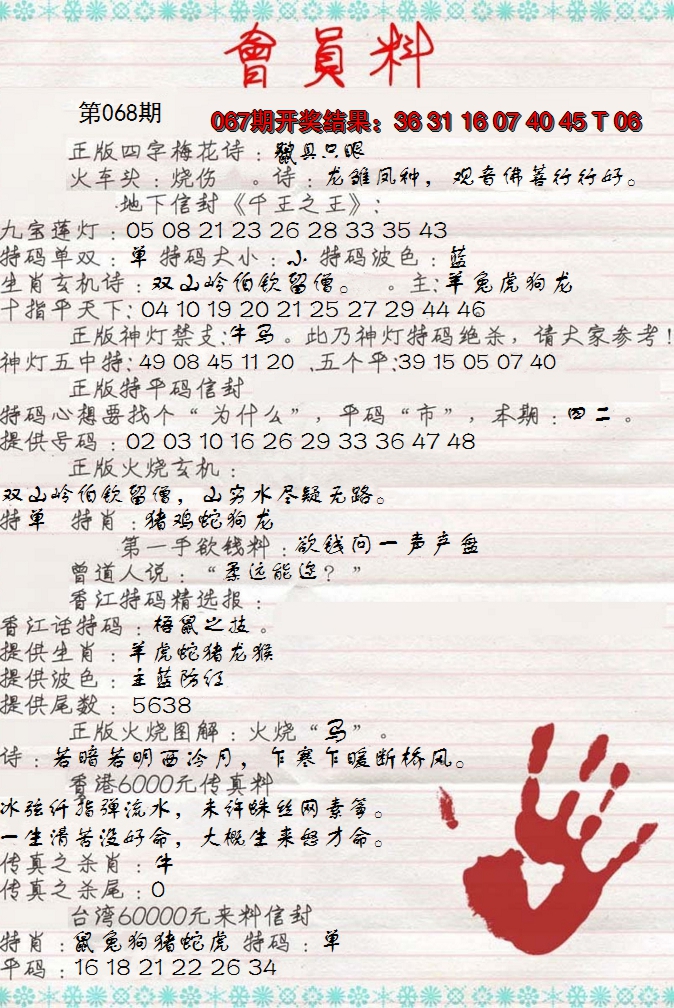 會員料
第068期
067期开奖结果：36 31 16 07 40 45 T 06
正版四字梅花诗：独具只眼
火车头：烧伤 。诗：龙雏凤种，观音佛善行行好。
地下信封《千王之王》：
九宝莲灯：05 08 21 23 26 28 33 35 43
特码单双：单 特码大小：小 特码波色：蓝
生肖玄机诗：双山岭伯钦留僧。 。主：羊兔虎狗龙
十指平天下：04 10 19 20 21 25 27 29 44 46
正版神灯禁支：牛马。此乃神灯特码绝杀，请大家参考！
神灯五中特：49 08 45 11 20 、五个平：39 15 05 07 40
正版特平码信封
特码心想要找个“为什么”，平码“市”，本期：四二。
提供号码：02 03 10 16 26 29 33 36 47 48
正版火烧玄机：
双山岭伯钦留僧，山穷水尽疑无路。
特单 特肖：猪鸡蛇狗龙
第一手欲钱料：欲钱问一声产盘
曾道人说：“柔远能迩？”
香江特码精选报：
香江话特码：梧鼠之技。
提供生肖：羊虎蛇猪龙猴
提供波色：主蓝防红
提供尾数：5638
正版火烧图解：火烧“马”。
诗：若暗若明西冷月，乍寒乍暖断桥风。
香港6000元传真料
冰弦纤指弹流水，未许蛛丝网素筝。
一生清苦没好命，大概生来怒才命。
传真之杀肖：牛
传真之杀尾：0
台湾60000元来料信封
特肖：鼠兔狗猪蛇虎 特码：单
平码：16 18 21 22 26 34